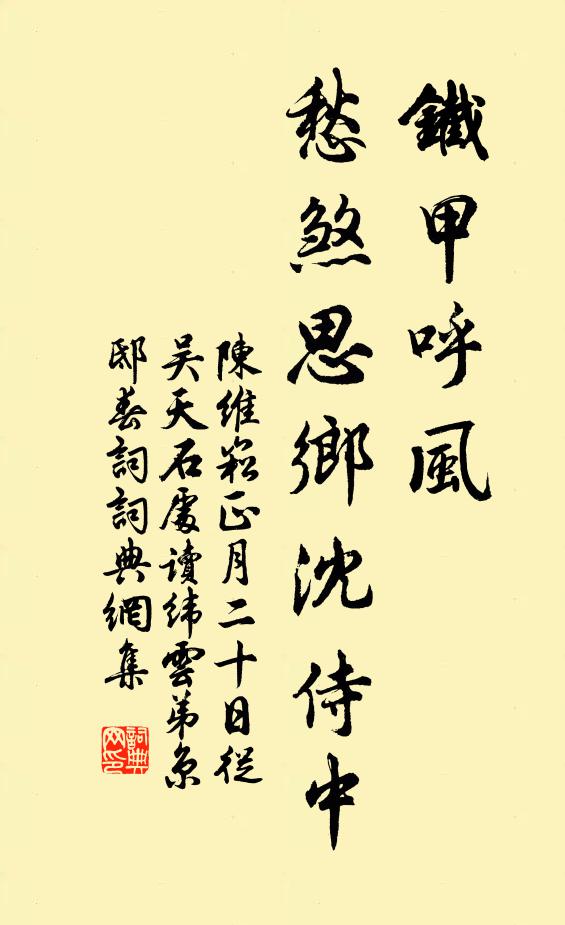 鐵甲呼風
愁煞思鄉沈侍中
陳維崧正月二十日從
吴天石處讀緯雲弟京
邸春詞詞典網集
詞典
网印